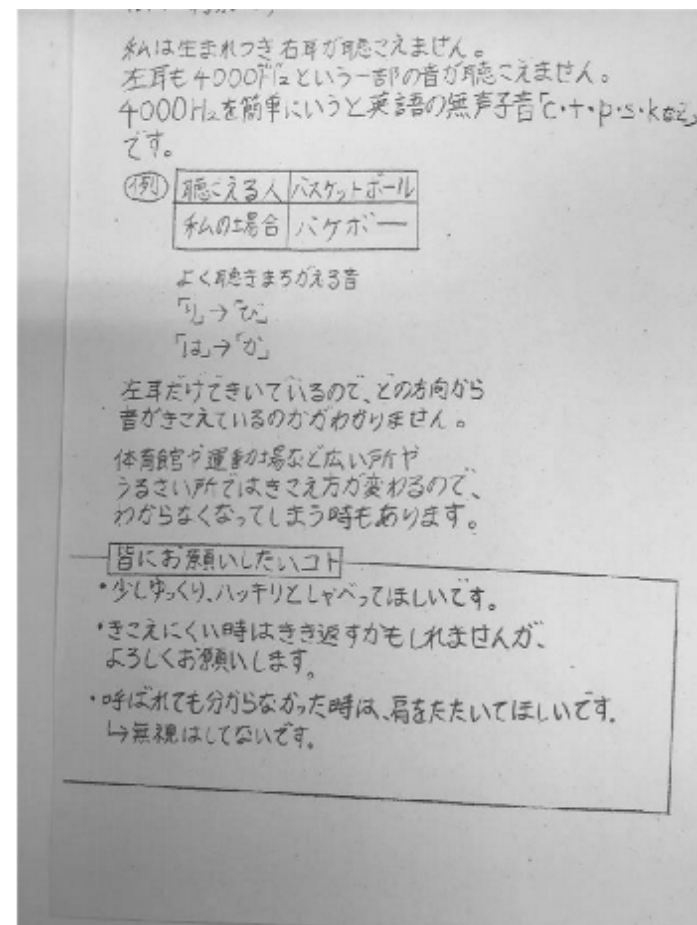 私は生まれつき右耳が聴こえません。
左耳も4000Hzという一部の音が聴こえません。
4000Hzを簡単にいうと英語の無声子音「c・t・p・s・kなど」
です。
例 聴こえる人 バスケットボール
私の場合 バケボー
よく聴きまちがえる音
「り」→「び」
「は」→「か」
左耳だけできいているので、どの方向から
音がきこえているのかがわかりません。
体育館や運動場など広い所や
うるさい所ではきこえ方が変わるので、
わからなくなってしまう時もあります。
皆にお願いしたいコト
・少しゆっくり、ハッキリとしゃべってほしいです。
・きこえにくい時はきき返すかもしれませんが、
よろしくお願いします。
・呼ばれても分からなかった時は、肩をたたいてほしいです。
↳無視はしてないです。